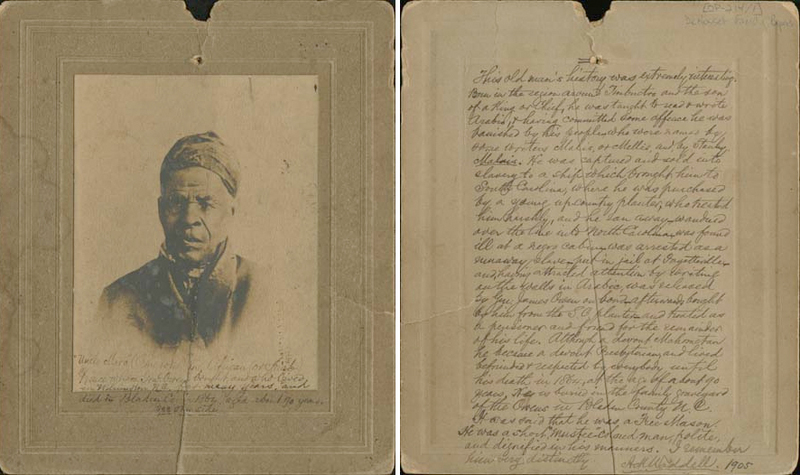 "Uncle Moro"
Owen bought and who lived
in Wilmington N.C. for many years, and
died in Bladen Co. in 1864 aged about 90 years.
see other side
DeRosset Family Papers
This old man's history was extremely interesting.
Born in the region around Timbuctoo and the son
of a King or Chief, he was taught to read & wrote
Arabic, & having committed some offence he was
banished by his people who were names by
some writers or Mellis, and by Stanley
He was captured and sold into
slavery to a ship which brought him to
South Carolina, where he was purchased
by a young up country planter, who treated
him harshly, and he ran away wandered
over the line into North Carolina was found
ill at a negro cabin was arrested as a
runaway slave put in jail at Fayetteville
and having attracted attention by writing
on the walls in Arabic, was released
by Gen. James Owen on bond, afterwards bought
by him from the S.C. planter and treated as
a pensioner and friend for the remainder
of his life. Although a devout Mahometan
he became a devout Presbyterian and lived
befriended & respected by everybody until
his death in 1864, at the age of about 90
years, He is buried in the family graveyard
of the Owens in Bladen County N.C.
It was said that he was a Free Mason.
He was a short "Mustee" colored man, polite,
and dignified in his manners. I remember
him very distinctly
1905